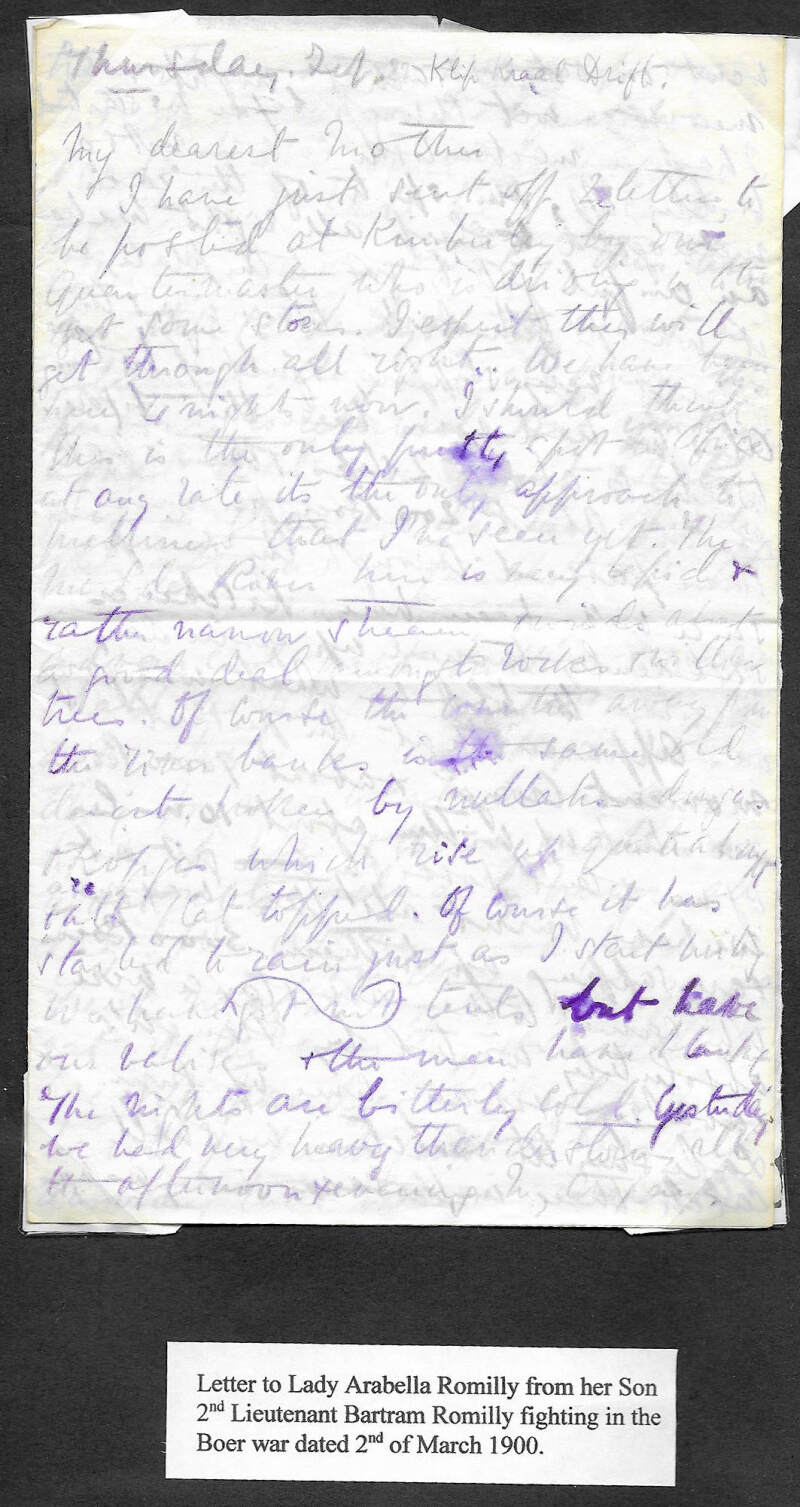 Thursday. Feb. Klip Kraal Drift.
My dearest Mother
I have just sent off 2 letters to
be posted at Kimberley by our
Quartermaster who is driving in to
get some stores. I expect they will
get through all right. We have been
here 4 nights now. I should think
this is the only pretty spot in Africa
at any rate its the only approach to
prettiness that I've seen yet. The
River here is very rapid &
rather narrow stream, winds about
a good deal amongst rocks & willow
trees. Of course the country away from
the river banks is the same old
desert, broken by nullahs dongas
& Kopjes which rise up &
are
all flat topped. Of course it has
started to rain just as I start writing
We have got not tents but have
our valises & the men have blankets
The nights are bitterly cold. Yesterday
we had very heavy thunderstorms all
the afternoon & evening.
Letter to Lady Arabella Romilly from her Son
2nd Lieutenant Bartram Romilly fighting in the
Boer war dated 2nd of March 1900.